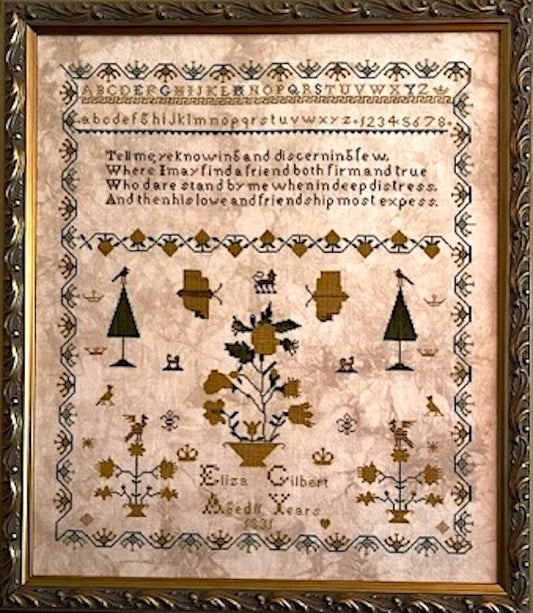 ABCDEFGHIJKLMNOPQRSTUVWXYZ
abcdefghijklmnopqrstuvwxyz 12345678
Tell me ye knowing and discerning few.
Where I may find a friend both firm and true
Who dare stand by me when in deep distress.
And then his love and friendship most expess.
Eliza Gilbert
Aged 11 Years
1831